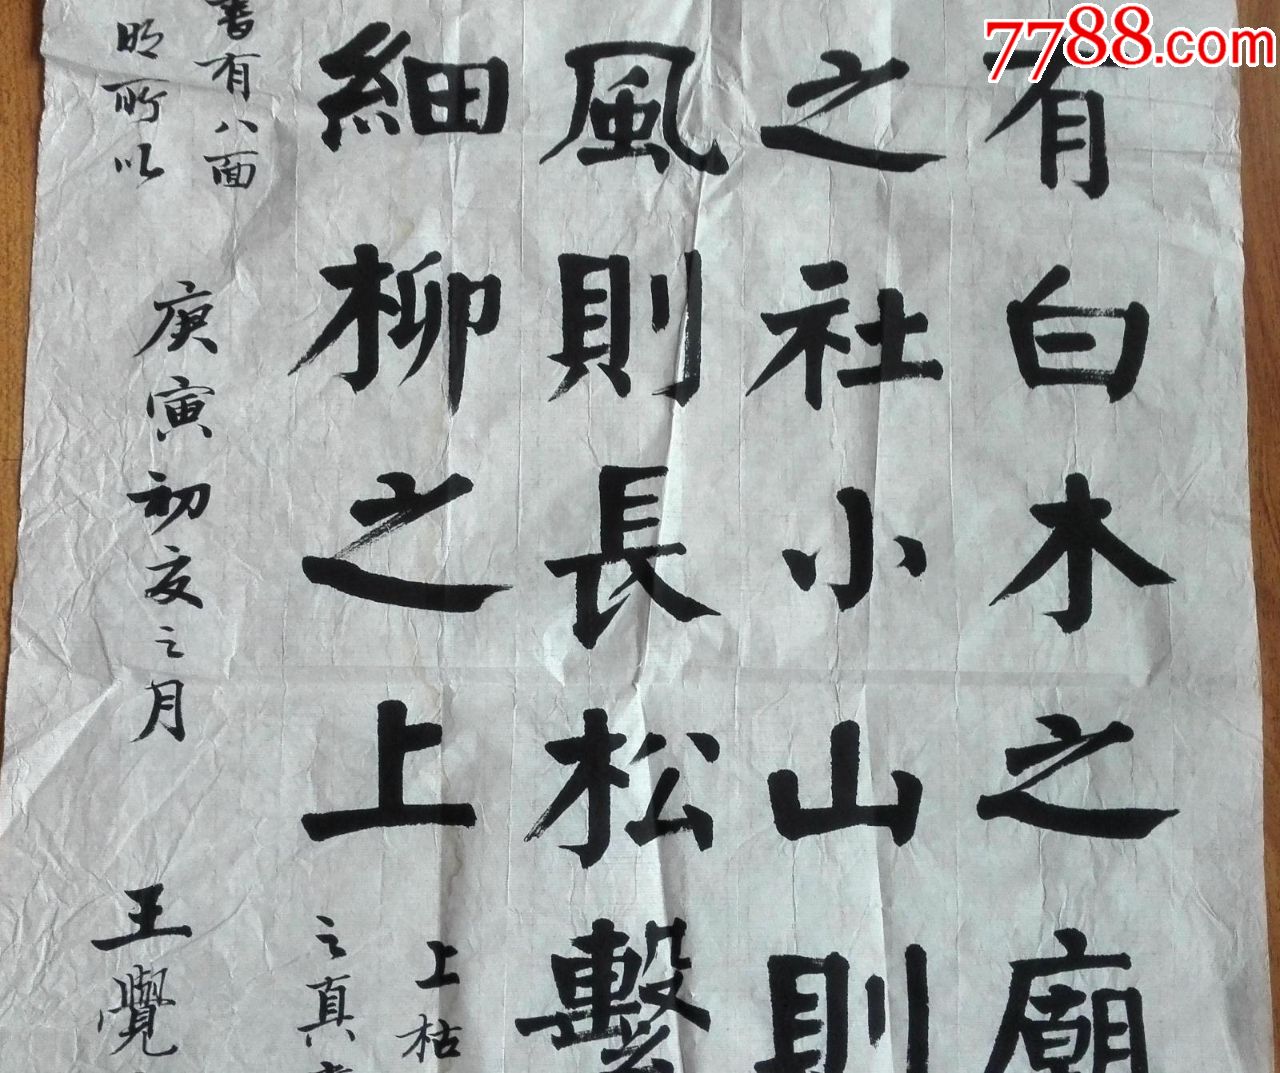 7788.com
有白木之廟
之社小山則
風則長松繫
細柳之上
上枯
之真
書有八面
明所以
庚寅初夏之月
王覺